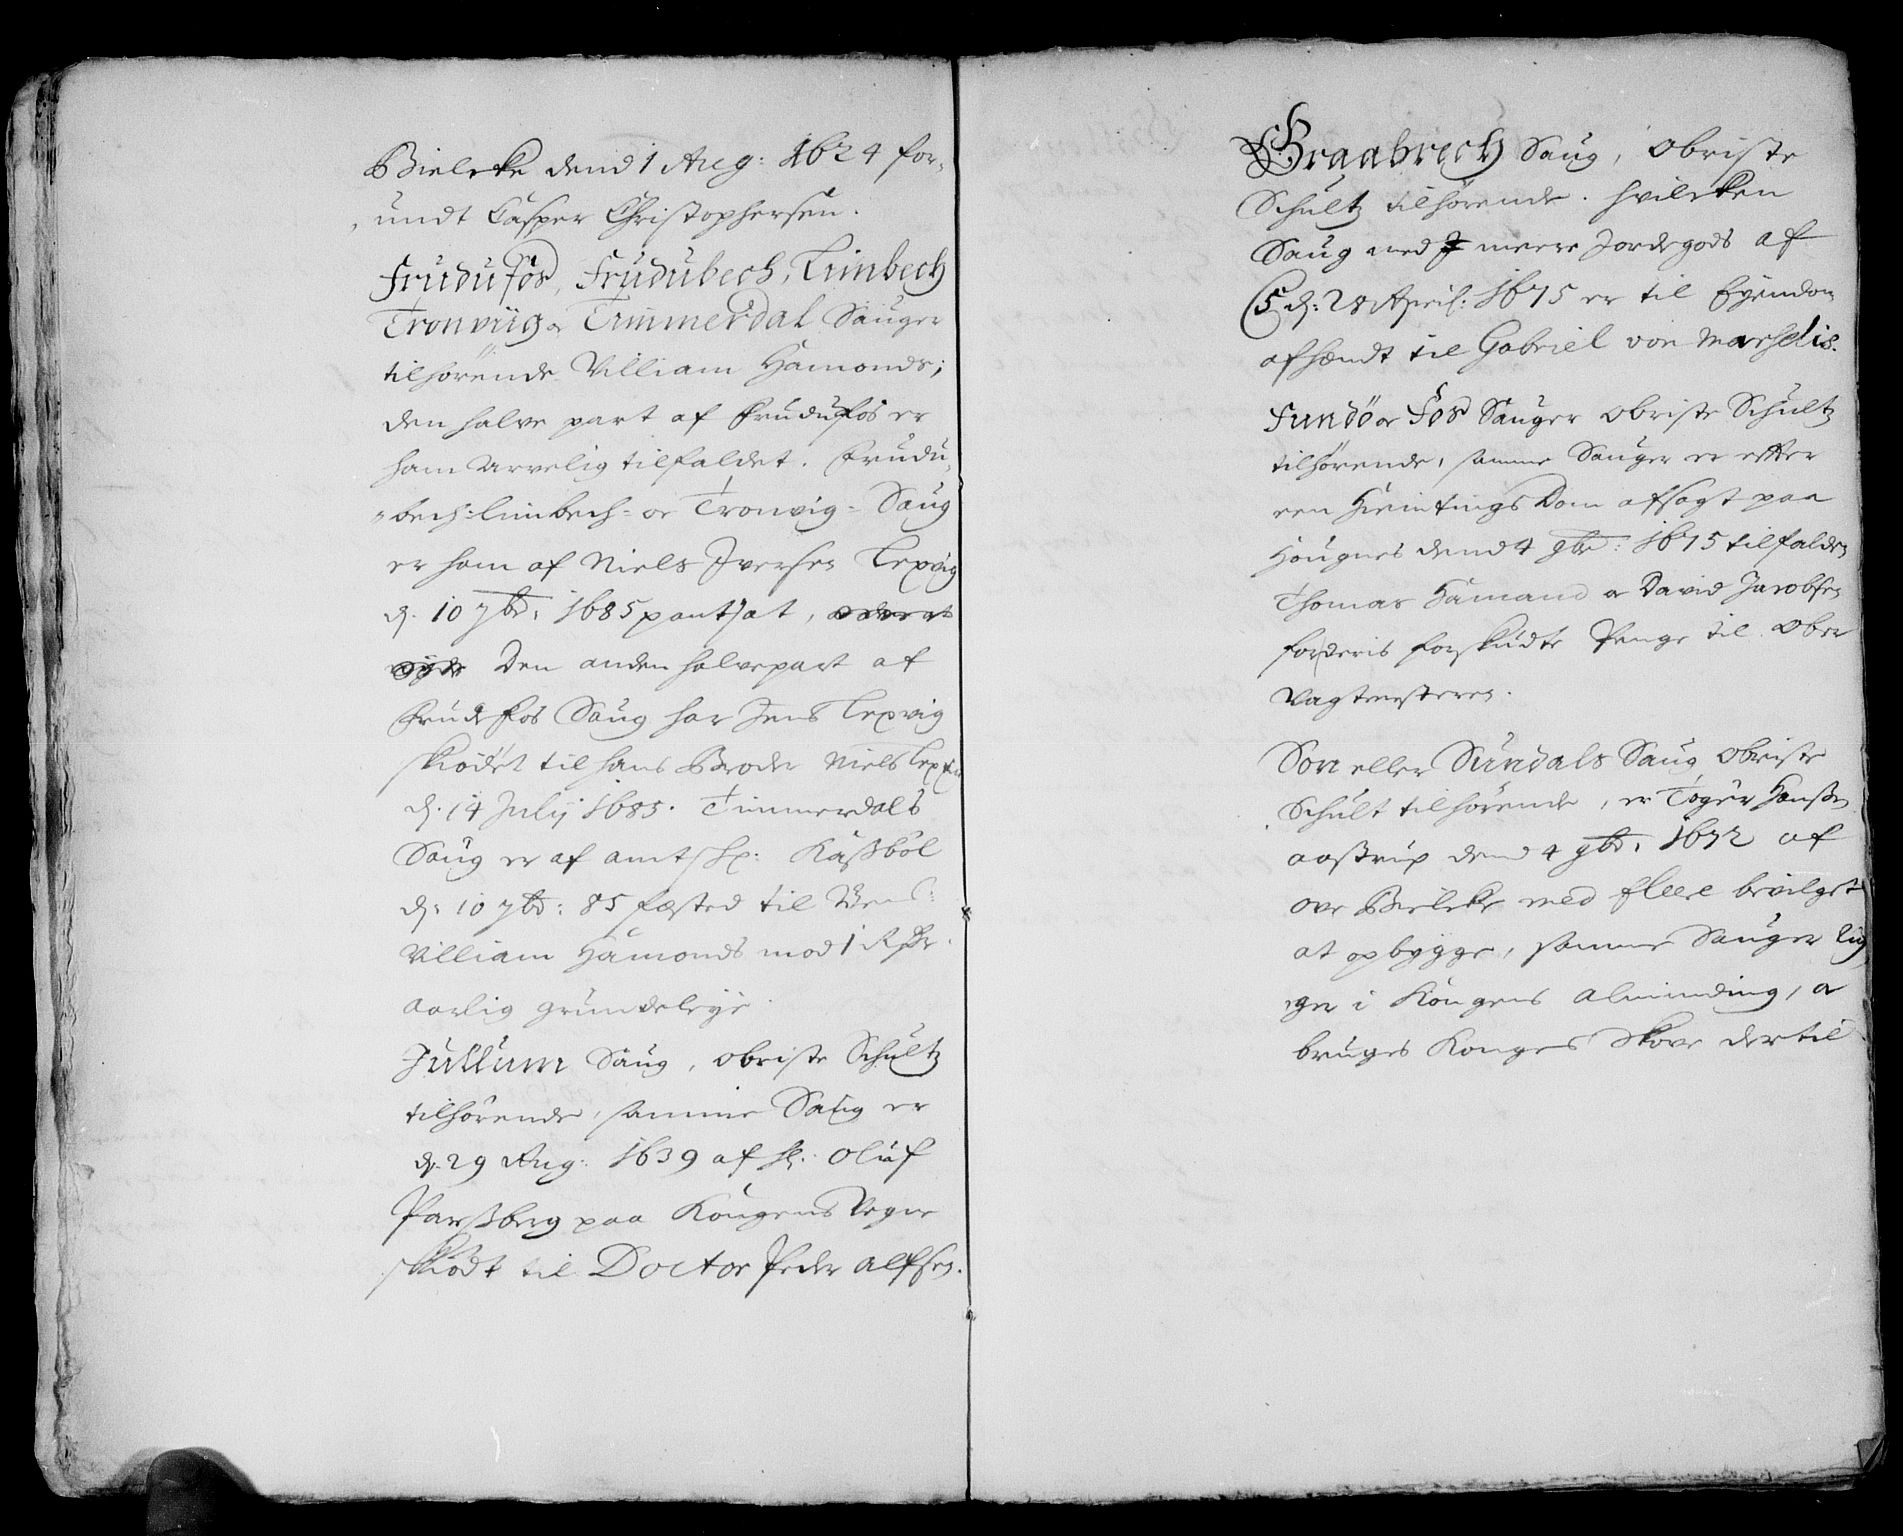 Bielcke dend 1 Aug: 1674 for-
undt Casper Christophersen.
Frudufos, Frudubech, Limbech
Tronviig oc Timmerdal Sauger
tilhörende Villiam Hamonds;
den halve part af Frudufos er
ham Arvelig tilfaldet. Frudu-
bech: limbech= oc Tronvig= Saug
er ham af Niels Iversen Lepvig
d. 10 7br: 1685 pantsat,
Den anden halvepart af
Frudefos Saug har Jens Lepvig
skiödet til hans Broder Niels
d. 14 Julij 1685. Timmerdals
Saug er af amtskr: Kassböl
d: 10 7br: 85 fæsted til
Villiam Hamonds mod 1 Rdr.
aarlig grundeleye.
Jullum Saug, obriste Schultz
tilhörende, samme Saug er
d. 29 Aug: 1639 af H: Oluf
Parssberg paa Kongens Vegne
skiödt til Doctor Peder Alfsen.
Graabrech Saug, Obriste
Schultz tilhörende. hvilcken
Saug med meere Jordegods af
C5 d: 28 April: 1675 er til Eyendom
afhændt til Gabriel von Marselis.
Fundö oc Fos Sauger obriste Schultz
tilhörende, samme Sauger er effter
een HiemtingsDom afsagt paa
Hougnes dend 4 9br: 1675 tilfalden
Thomas Hamand oc David Jacobsen
for deris forskudte Penge til ober
Vagtmesteren.
Son eller Sundals Saug Obriste
Schult tilhörende, er Töger Hanssen
Aastrup dend 4 9br. 1672 af
Ove Bielcke med fleere bevilget
at opbygge, samme Sauger lig
ger i Kongens Alminding, oc
bruges Konges Skove dertil.